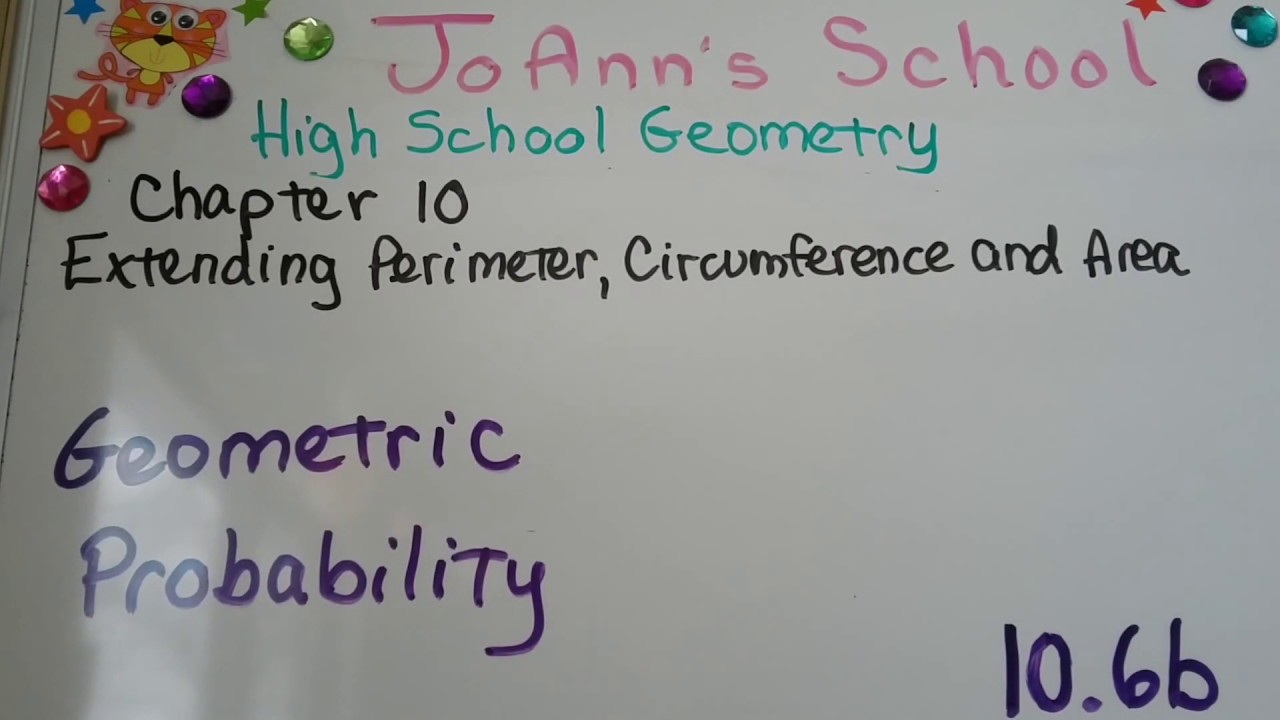 JoAnn's School
High School Geometry
Chapter 10
Extending Perimeter, Circumference and Area
Geometric
Probability
10.6b